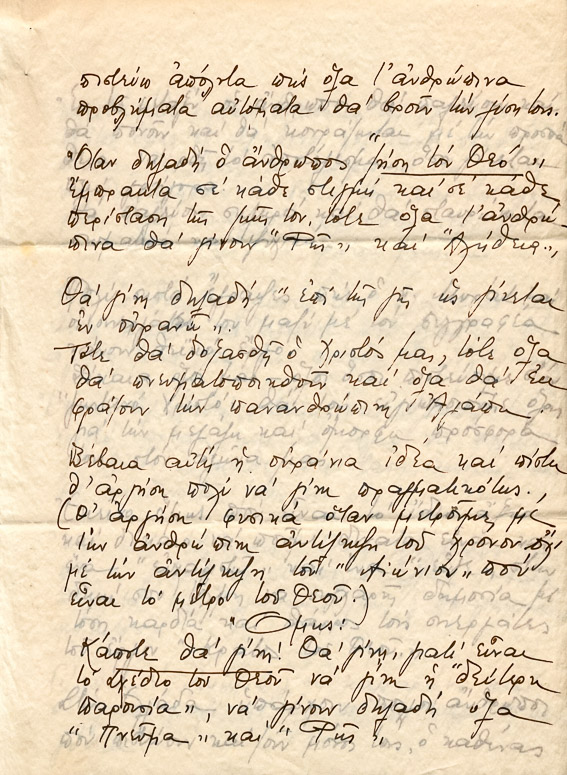 πιστεύω ἀπόλυτα πώς ὅλα τ' ἀνθρώπινα
προβλήματα αὐτόματα θά βροῦν τήν λύση τους.
Ὅταν δηλαδή ὁ ἄνθρωπος "ζήση τόν Θεό"
ἔμπρακτα σέ κάθε στιγμή καί σέ κάθε
περίσταση τῆς ζωῆς του, τότε ὅλα τ' ἀνθρώ-
πινα θά γίνουν "Φῶς" καί "Ἀλήθεια",
Θά γίνη δηλαδή "ἐπί τῆς γῆς ὡς γίνεται
ἐν οὐρανῶ".
Τότε θά δοξασθῆ ὁ Χριστός μας, τότε ὅλα
θά πνευματοποιηθοῦν καί ὅλα θά ἐκ
φράζουν τήν πανανθρώπινη Ἀγάπη.
Βέβαια αὐτή ἡ οὐράνια ἰδέα καί πίστη
θ' ἀργήση πολύ νά γίνη πραγματικότης.,
(Θ' ἀργήση φυσικά ὅταν μετροῦμε με
τήν ἀνθρώπινη ἀντίληψη τοῦ χρόνου ὄχι
με τήν ἀντίληψη τοῦ "Αἰώνιου" πού
εἶναι τό μέτρο τοῦ Θεοῦ.)
Ὅμως!
Κάποτε θά γίνη! Θά γίνη, γιατί εἶναι
τό σχέδιο τοῦ Θεοῦ νά γίνη ἡ "δευτέρη
παρουσία", νά γίνουν δηλαδή ὅλα
"Πνεῦμα" καί "Φῶς".